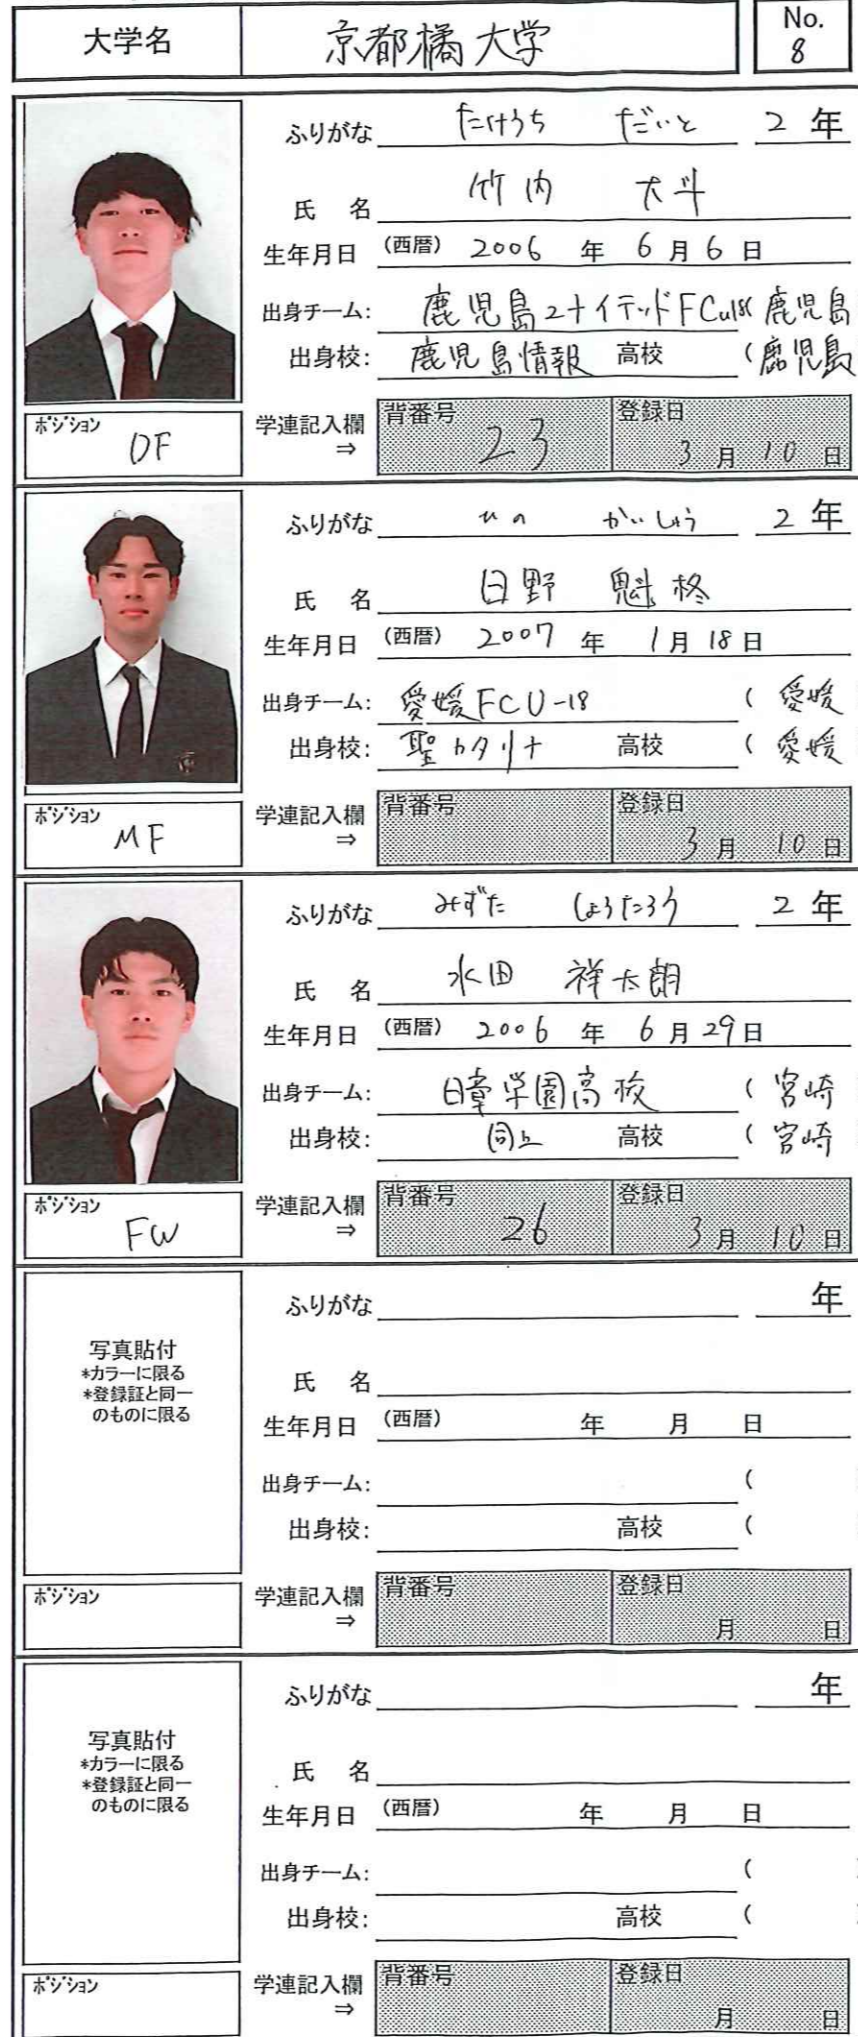 大学名 京都橘大学 No. 8
ふりがな たけうち だいと 2 年
氏 名 竹内 大斗
生年月日 (西暦) 2006 年 6 月 6 日
出身チーム: 鹿児島ユナイテッドFCu18( 鹿児島
出身校: 鹿児島情報 高校 ( 鹿児島
ポジション DF
学連記入欄 ⇒ 背番号 23 登録日 3 月 10 日
ふりがな ひの かいしゅう 2 年
氏 名 日野 魁柊
生年月日 (西暦) 2007 年 1 月 18 日
出身チーム: 愛媛FCU-18 ( 愛媛
出身校: 聖カタリナ 高校 ( 愛媛
ポジション MF
学連記入欄 ⇒ 背番号 登録日 3 月 10 日
ふりがな みずた しょうたろう 2 年
氏 名 水田 祥太朗
生年月日 (西暦) 2006 年 6 月 29 日
出身チーム: 日章学園高校 ( 宮崎
出身校: 同上 高校 ( 宮崎
ポジション FW
学連記入欄 ⇒ 背番号 26 登録日 3 月 10 日
写真貼付
*カラーに限る
*登録証と同一
のものに限る
ふりがな 年
氏 名
生年月日 (西暦) 年 月 日
出身チーム: (
出身校: 高校 (
ポジション
学連記入欄 ⇒ 背番号 登録日 月 日
写真貼付
*カラーに限る
*登録証と同一
のものに限る
ふりがな 年
氏 名
生年月日 (西暦) 年 月 日
出身チーム: (
出身校: 高校 (
ポジション
学連記入欄 ⇒ 背番号 登録日 月 日